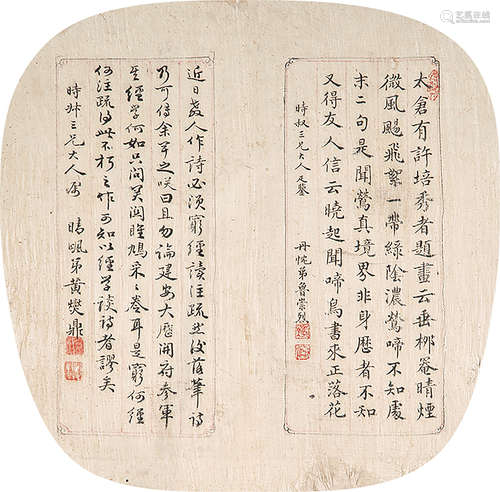 太倉有許培秀者題畫云垂柳菴晴煙
微風颺飛絮一帶綠陰濃鶯啼不知處
末二句是聞鶯真境界非身歷者不知
又得友人信云曉起聞啼鳥書來正落花
時叔三兄大人正鑒
丹忱弟魯崇烈
近日教人作詩必須窮經讀注疏然後落筆詩
乃可傳余聞之咲曰且勿論建安大歷開府參軍
其經學何如只問關關雎鳩采采卷耳是窮何經
何注疏得此不朽之作可知以經學談詩者謬矣
時叔三兄大人屬
晴颿弟黃樊鼎